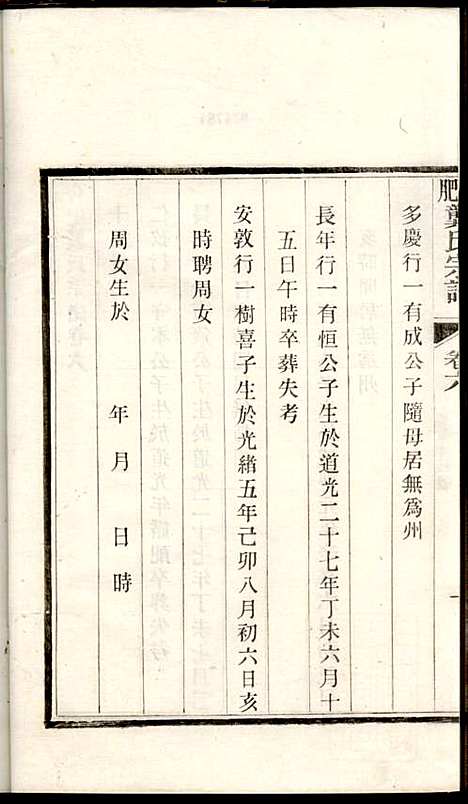 肥龔氏宗譜 卷六 一
多慶行一有成公子隨母居無為州
長年行一有恒公子生於道光二十七年丁未六月十
五日午時卒葬失考
安敦行一樹喜子生於光緒五年己卯八月初六日亥
時聘周女
周女生於 年 月 日 時